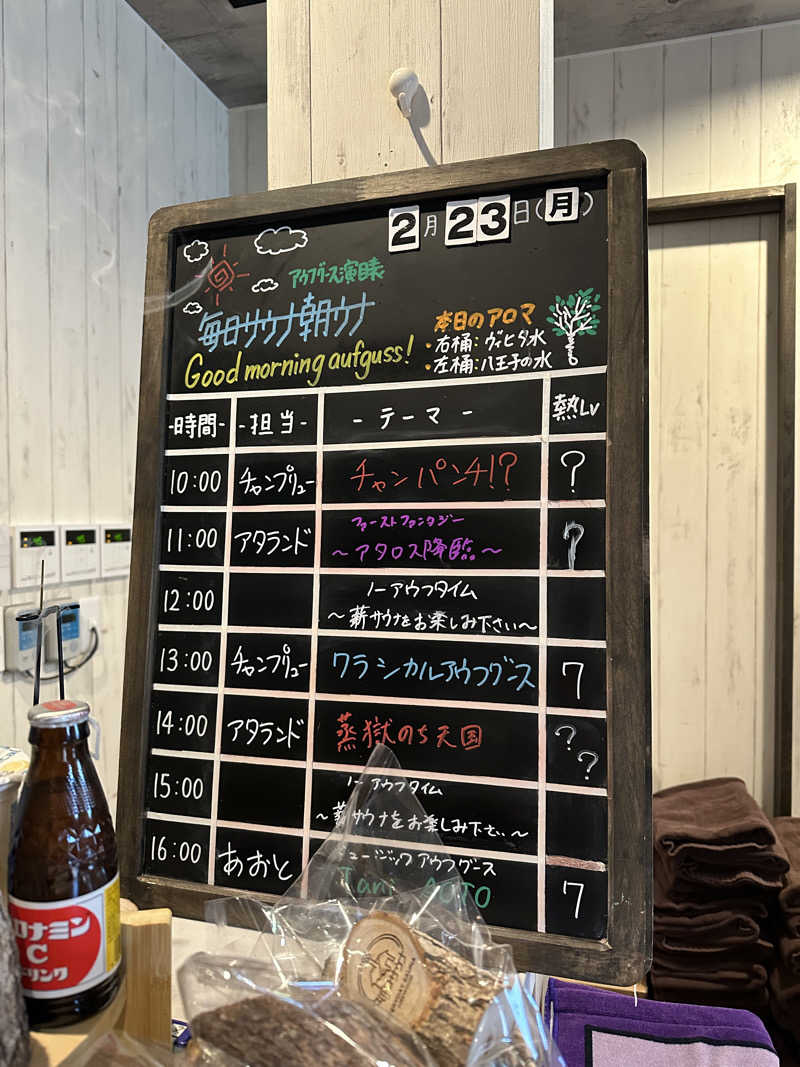 2月23日(月)
アウフグース演目表
毎日サウナ朝ウナ
Good morning aufguss!
本日のアロマ
・右桶:ヴィヒタ水
・左桶:八王子の水
-時間- -担当- -テーマ- 熱Lv
10:00 チャンプリュー チャンパンチ!? ?
11:00 アタランド ファーストファンタジー ?
～アタロス降臨～
12:00 ノーアウフタイム
～薪サウナをお楽しみ下さい～
13:00 チャンプリュー クラシカルアウフグース 7
14:00 アタランド 蒸獄のち天国 ??
15:00 ノーアウフタイム
～薪サウナをお楽しみ下さい～
16:00 あおと ミュージックアウフグース 7
AOTO
ロナミン
C
リンク